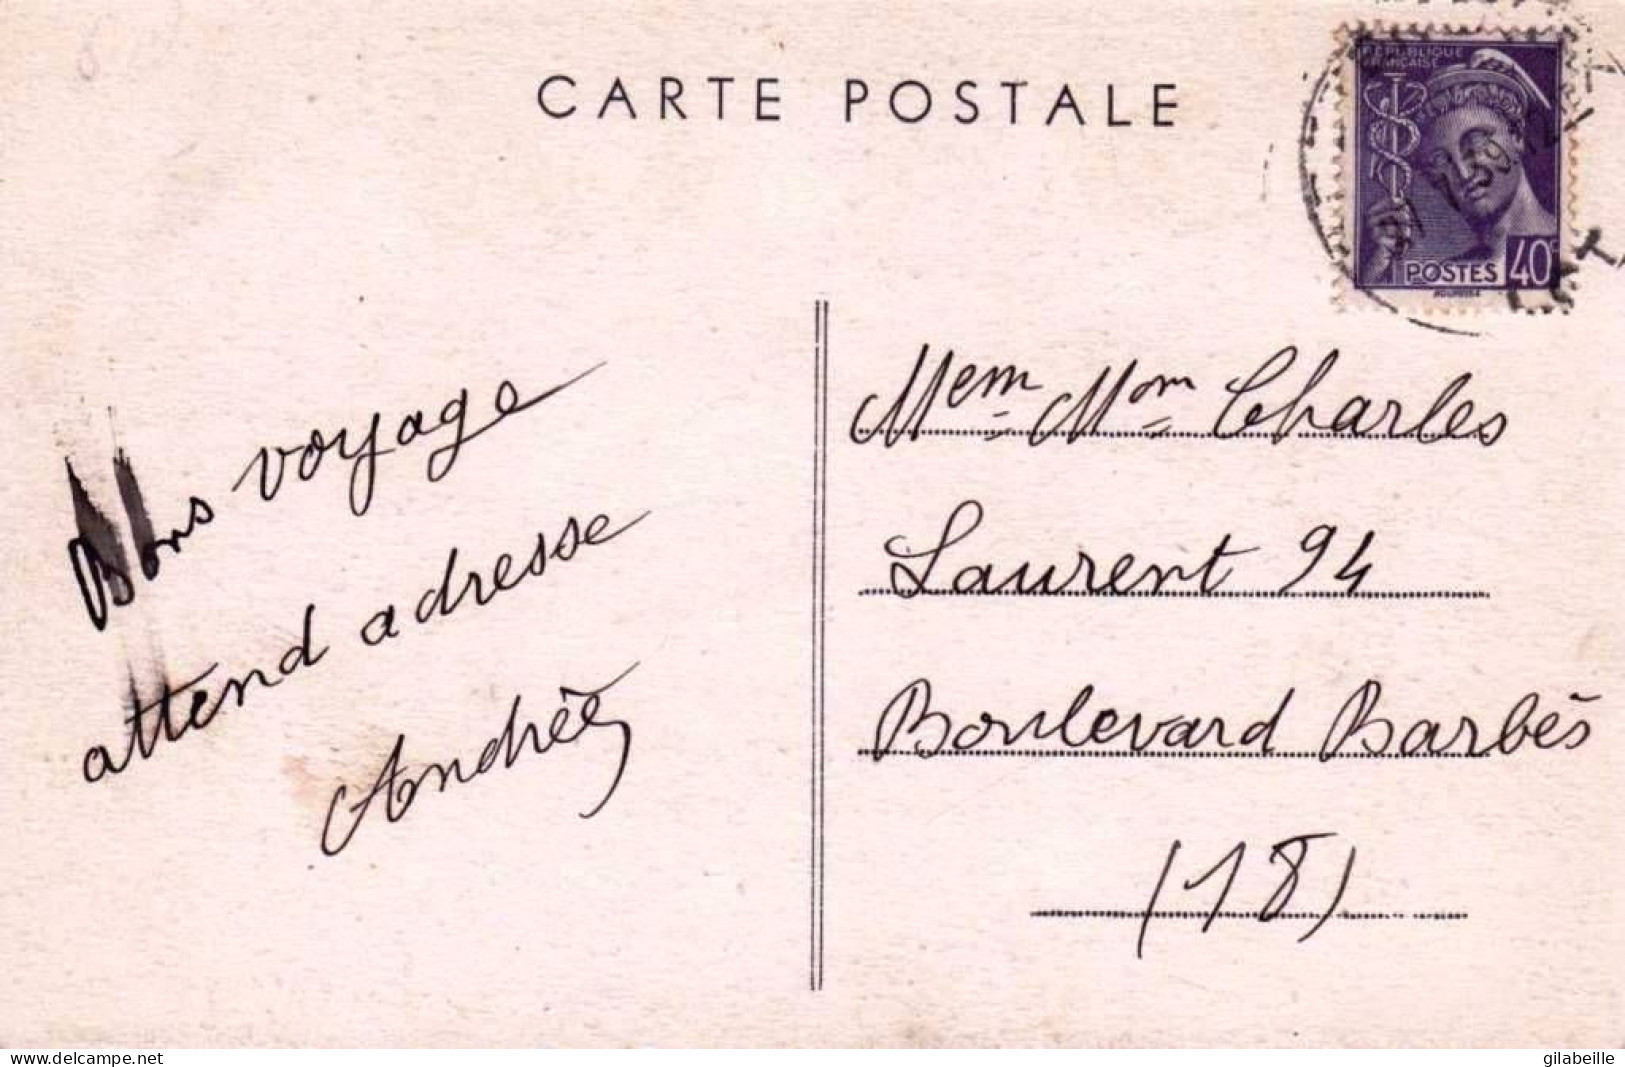 CARTE POSTALE
RÉPUBLIQUE
FRANÇAISE
POSTES 40c
Bons voyage
attend adresse
Andrée
Mem Mom Charles
Laurent 94
Boulevard Barbès
(18)
www.delcampe.net
gilabeille